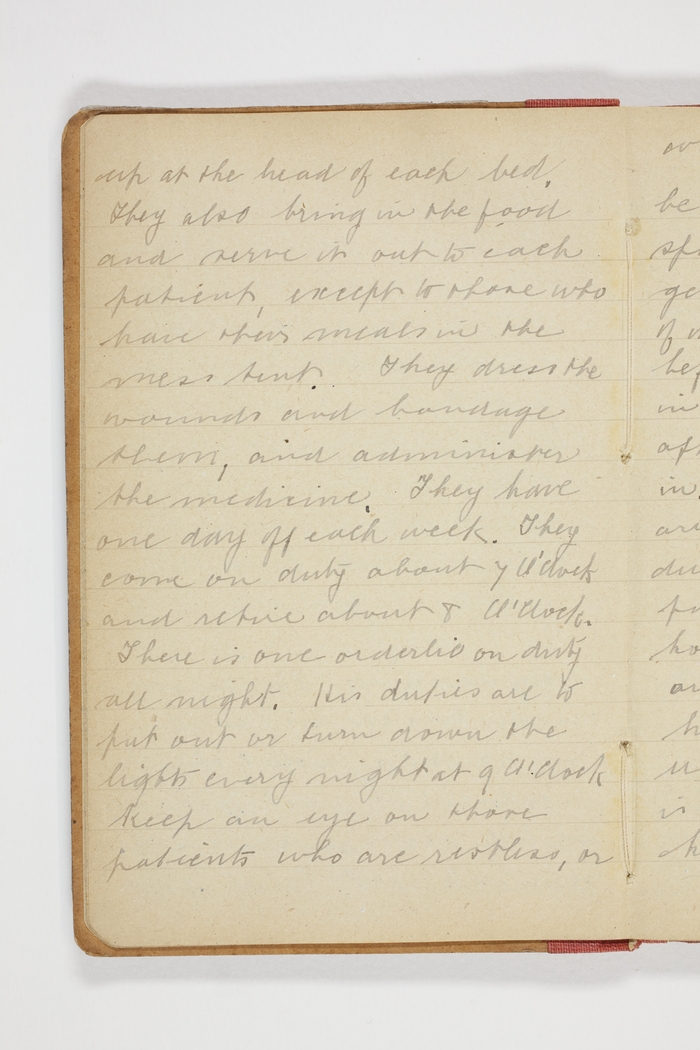 up at the head of each bed.
They also bring in the food
and serve it out to each
patient, except to those who
have their meals in the
mess tent. They dress the
wounds and bandage
them, and administer
the medicine. They have
one day off each week. They
come on duty about 7 O'Clock
and retire about 8 O'Clock.
There is one orderlie on duty
all night. His duties are to
put out or turn down the
lights every night at 9 O'Clock
Keep an eye on those
patients who are restless, or
be
in
in
is